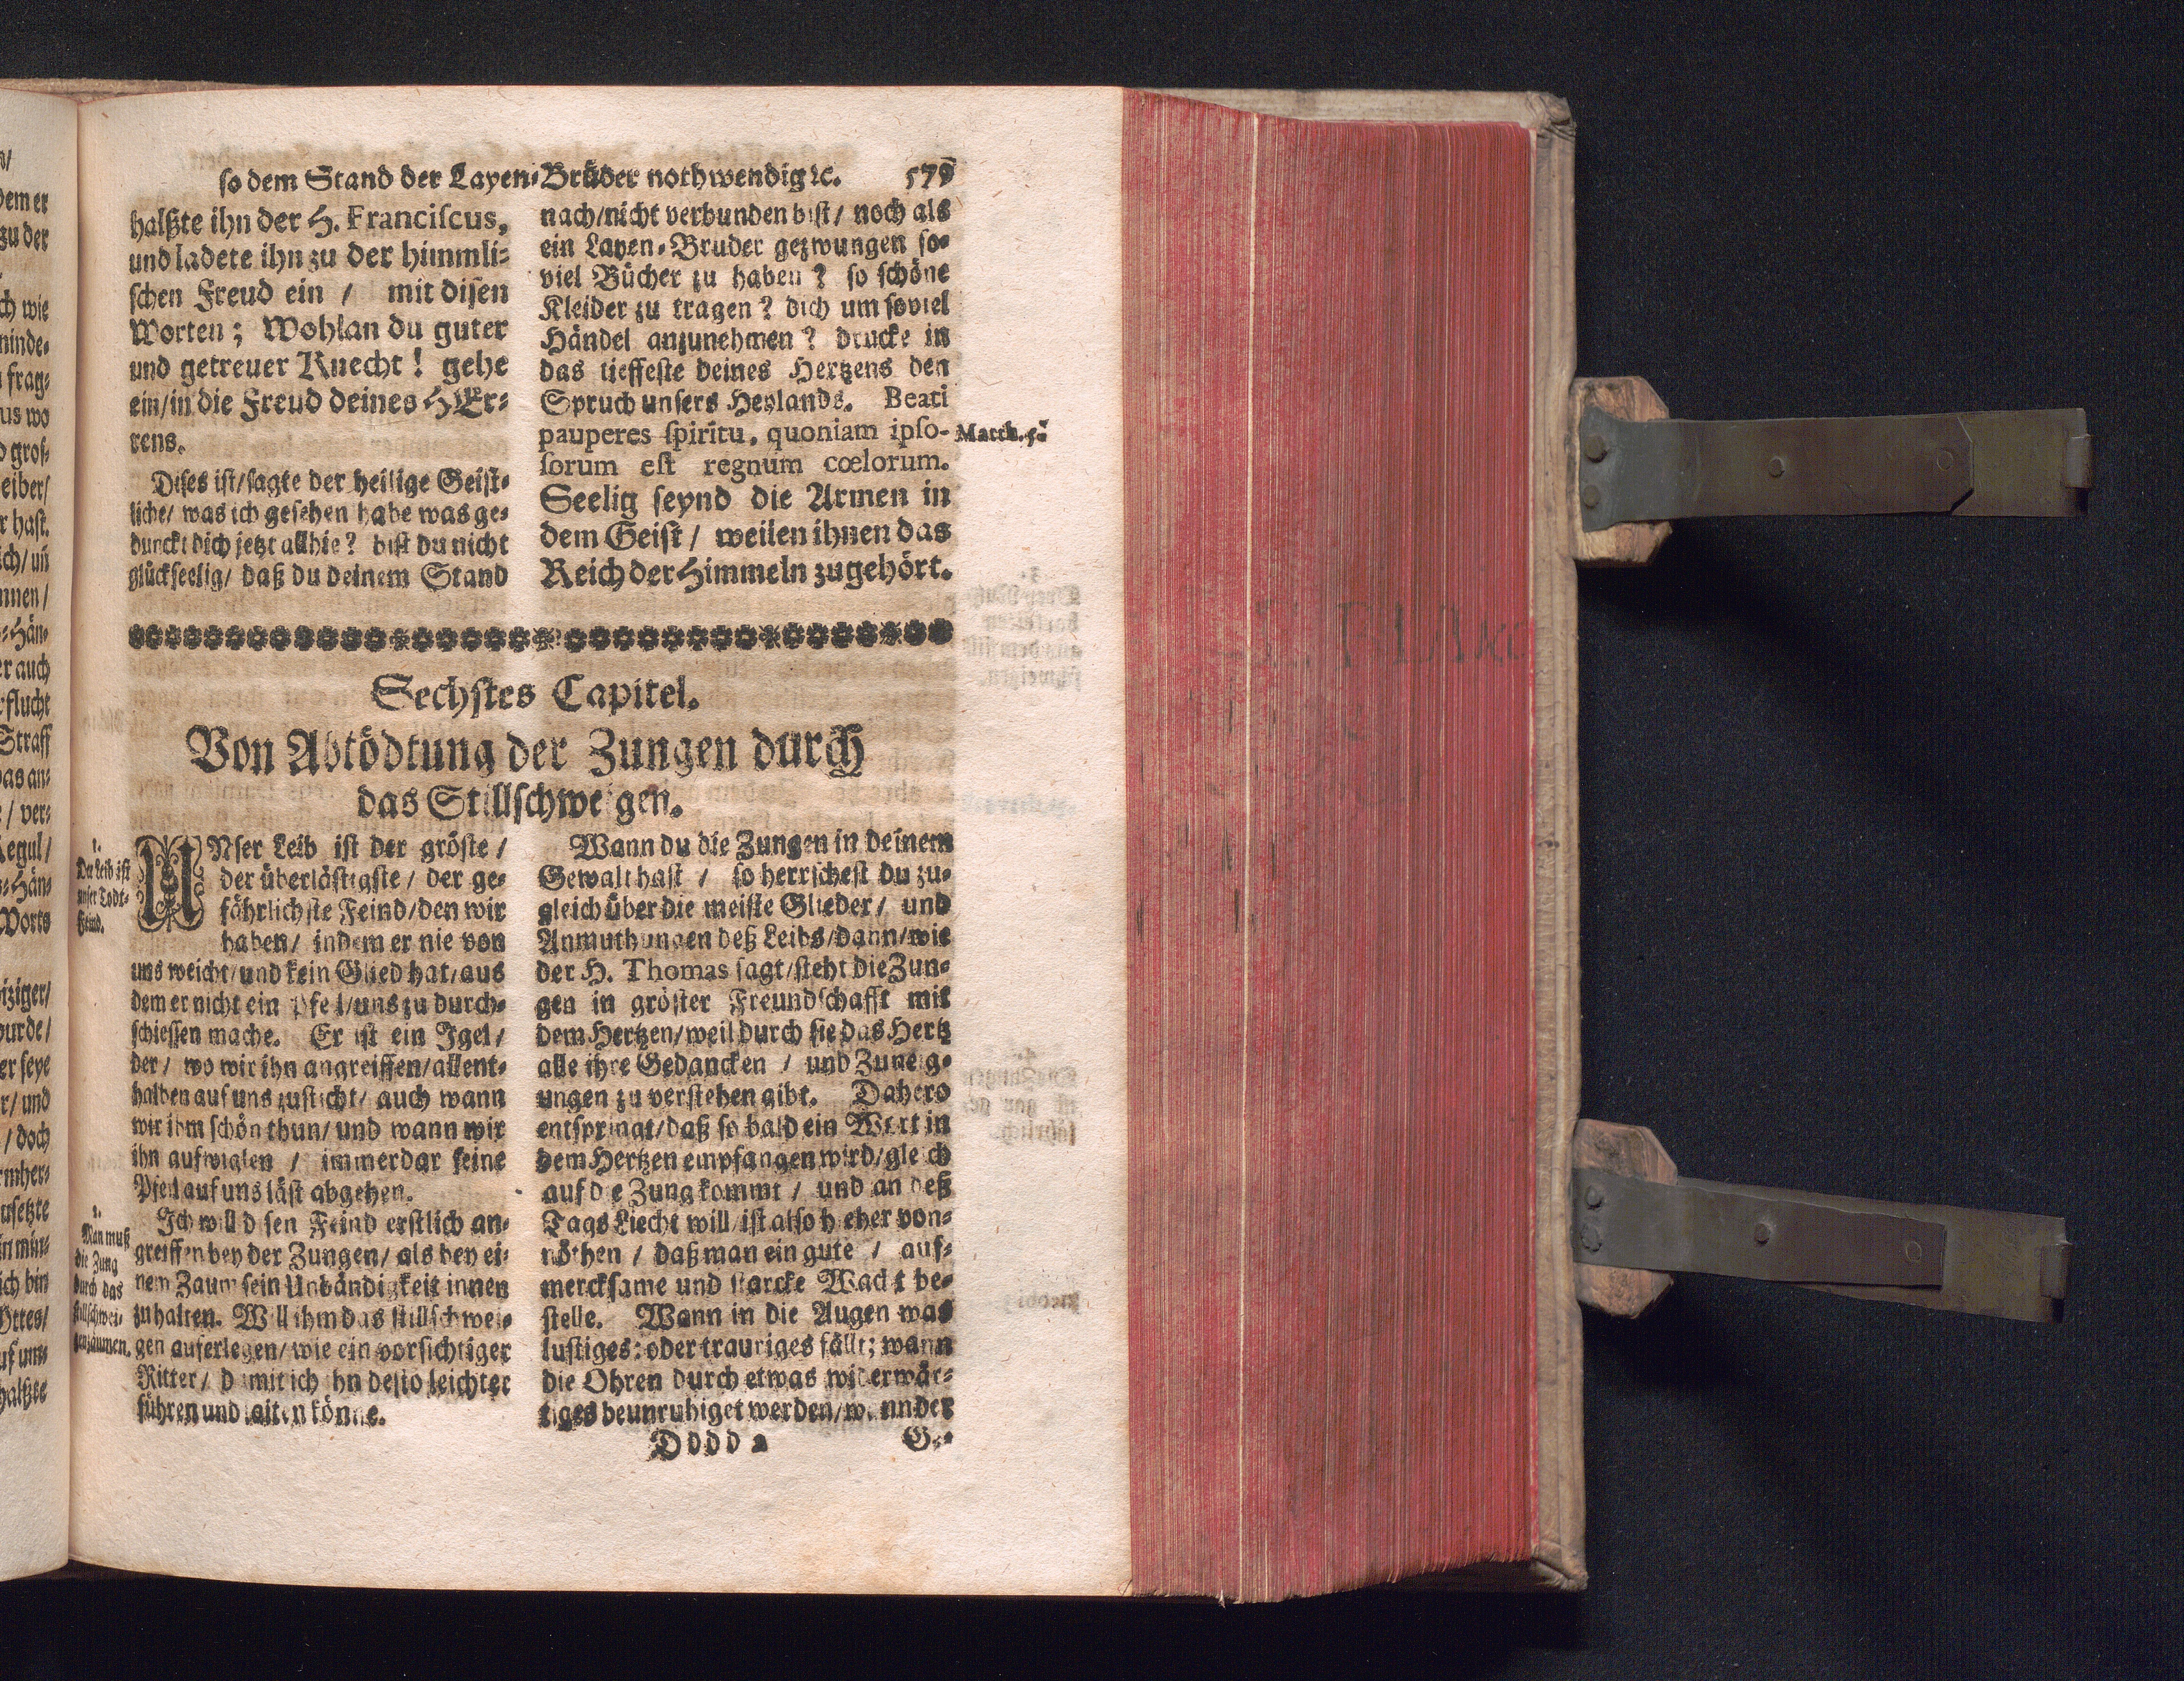 so dem Stand der Layen-Brüder nothwendig ꝛc. 579
halßte ihn der H. Franciscus,
und ladete ihn zu der himmli-
schen Freud ein / mit disen
Worten; Wohlan du guter
und getreuer Knecht! gehe
ein/in die Freud deines HEr-
rens.
Dises ist/sagte der heilige Geist-
liche/ was ich gesehen habe was ge-
dunckt dich jetzt allhie? bist du nicht
glückseelig/ daß du deinem Stand
nach/nicht verbunden bist/ noch als
ein Layen-Bruder gezwungen so-
viel Bücher zu haben? so schöne
Kleider zu tragen? dich um soviel
Händel anzunehmen? drucke in
das tieffeste deines Hertzens den
Spruch unsers Heylands. Beati
pauperes spiritu, quoniam ipso-
sorum est regnum cœlorum.
Seelig seynd die Armen in
dem Geist / weilen ihnen das
Reich der Himmeln zugehört.
Matth. 5.
Sechstes Capitel.
Von Abtödtung der Zungen durch
das Stillschweigen.
1.
Der Leib ist
unser Todt-
Feind.
UNser Leib ist der gröste /
der überlästigste / der ge-
fährlichste Feind/den wir
haben/ indem er nie von
uns weicht/und kein Glied hat/aus
dem er nicht ein Pfeil/uns zu durch-
schiessen mache. Er ist ein Igel /
der / wo wir ihn angreiffen/allent-
halben auf uns zusticht/ auch wann
wir ihm schön thun/ und wann wir
ihn aufwiglen / immerdar seine
Pfeil auf uns läst abgehen.
2.
Man muß
die Zung
durch das
stillschwei-
gen zäumen.
Ich will disen Feind erstlich an-
greiffen bey der Zungen/ als bey ei-
nem Zaum sein Unbändigkeit innen
zuhalten. Will ihm das stillschwei-
gen auferlegen/ wie ein vorsichtiger
Ritter / damit ich ihn desto leichter
führen und laiten könne.
Wann du die Zungen in deinem
Gewalt hast / so herrschest du zu-
gleich über die meiste Glieder / und
Anmuthungen deß Leibs/dann/wie
der H. Thomas sagt/steht die Zun-
gen in gröster Freundschafft mit
dem Hertzen/weil durch sie das Hertz
alle ihre Gedancken / und Zuneig-
ungen zu verstehen gibt. Dahero
entspringt/daß so bald ein Wort in
dem Hertzen empfangen wird/gleich
auf die Zung kommt / und an deß
Tags Liecht will/ist also hieher von-
nöthen / daß man ein gute / auf-
mercksame und starcke Wacht be-
stelle. Wann in die Augen was
lustiges: oder trauriges fällt; wann
die Ohren durch etwas widerwär-
tiges beunruhiget werden/wann der
Dddd 2 Ge-